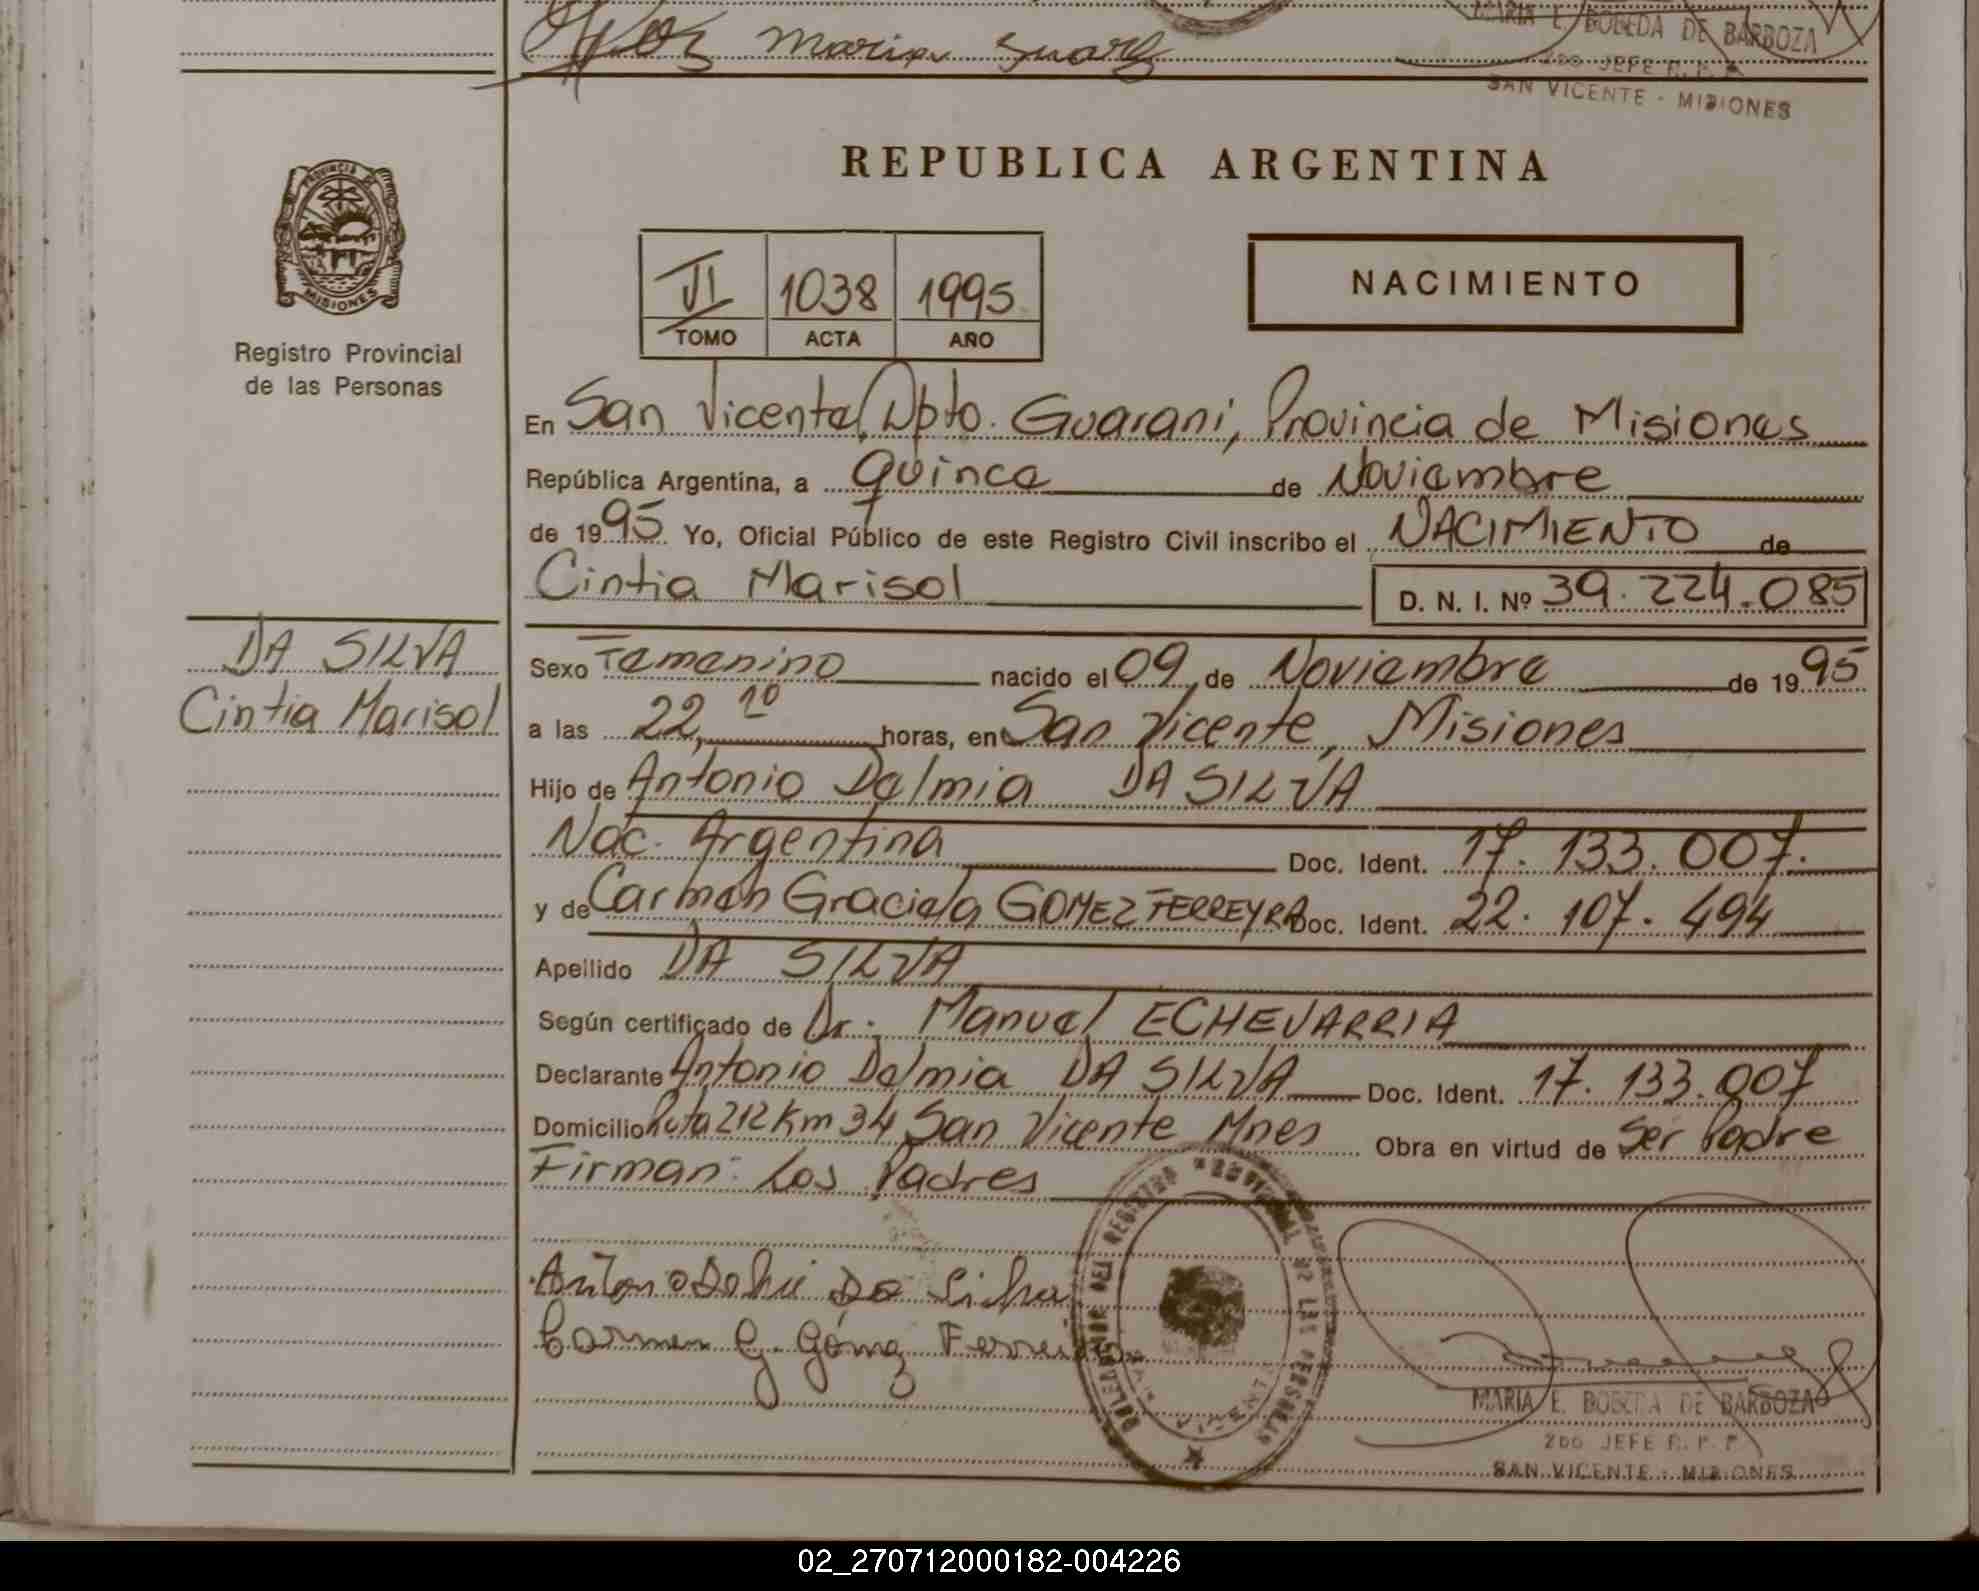 Maria Suarez
MARIA E. BOBEDA DE BARBOZA
2DO JEFE R. P. P.
SAN VICENTE - MISIONES
REPUBLICA ARGENTINA
PROVINCIA DE MISIONES
Registro Provincial
de las Personas
VI 1038 1995
TOMO ACTA AÑO
NACIMIENTO
En San Vicente, Dpto. Guarani, Provincia de Misiones
República Argentina, a quince de Noviembre
de 1995 Yo, Oficial Público de este Registro Civil inscribo el NACIMIENTO de
Cintia Marisol D. N. I. Nº 39.224.085
DA SILVA
Cintia Marisol
Sexo Femenino nacido el 09 de Noviembre de 1995
a las 22,10 horas, en San Vicente, Misiones
Hijo de Antonio Delmia DA SILVA
Nac. Argentina Doc. Ident. 17.133.007.
y de Carmen Graciela GOMEZ FERREYRA Doc. Ident. 22.107.494
Apellido DA SILVA
Según certificado de Dr. Manuel ECHEVARRIA
Declarante Antonio Delmia DA SILVA Doc. Ident. 17.133.007
Domicilio Ruta 212 Km 34 San Vicente Mnes Obra en virtud de Ser Padre
Firman: Los Padres
Antonio Da Silva
Carmen G. Gómez Ferreira
DELEGACION DEL REGISTRO PROVINCIAL DE LAS PERSONAS
SAN VICENTE
MARIA E. BOBEDA DE BARBOZA
2DO JEFE R. P. P.
SAN VICENTE - MISIONES
02_270712000182-004226